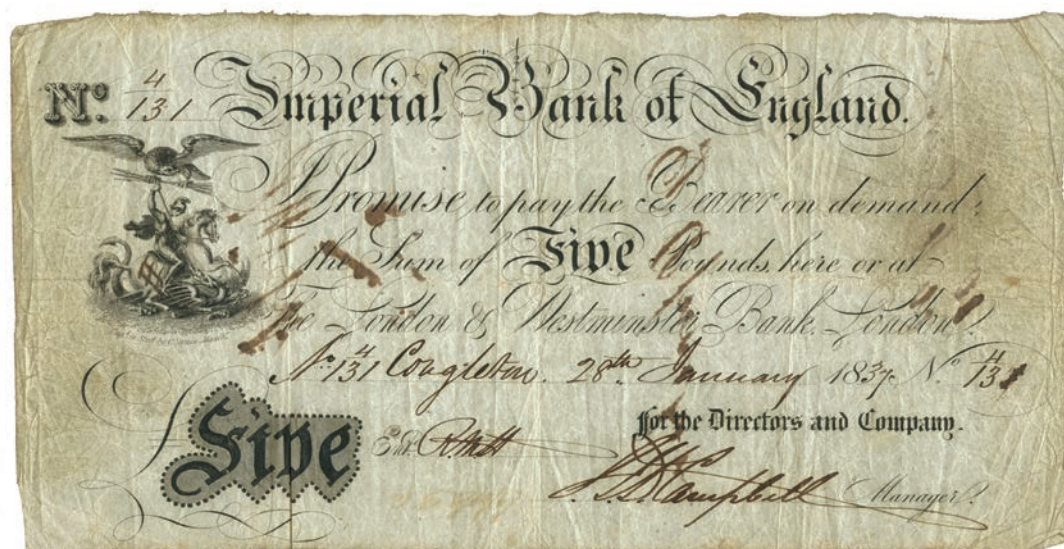 No. 4/131 Imperial Bank of England.
I Promise to pay the Bearer on demand
the Sum of Five Pounds, here or at
The London & Westminster Bank London
No. 4/131 Congleton. 28th January 1837. No. 4/131
for the Directors and Company.
Five Entd.
Campbell Manager